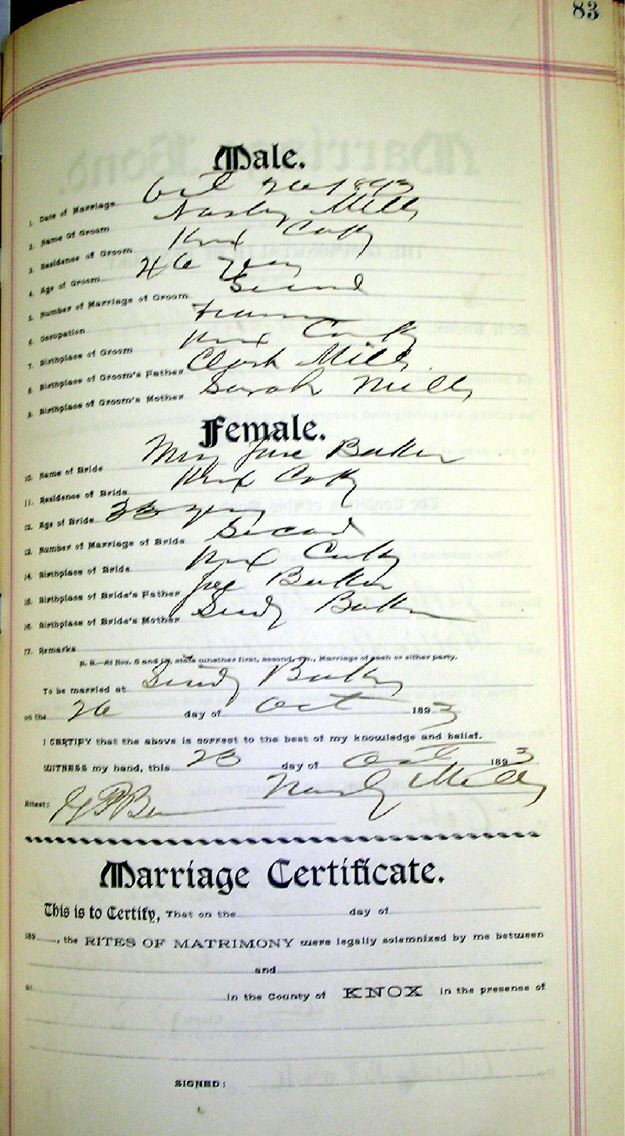 83
Male.
1. Date of Marriage Oct 26 1893
2. Name Of Groom Nasby Mills
3. Residence of Groom Knox Co Ky
4. Age of Groom 46 years
5. Number of Marriage of Groom Second
6. Occupation Farmer
7. Birthplace of Groom Knox Co Ky
8. Birthplace of Groom's Father Clark Mills
9. Birthplace of Groom's Mother Sarah Mills
Female.
10. Name of Bride Jane
11. Residence of Bride Knox Co Ky
12. Age of Bride years
13. Number of Marriage of Bride Second
14. Birthplace of Bride Knox Co Ky
15. Birthplace of Bride's Father Joe
16. Birthplace of Bride's Mother
17. Remarks
N. B.—At Nos. 5 and 13, state whether first, second, etc., Marriage of each or either party.
To be married at
on the 26 day of Oct 1893
I CERTIFY that the above is correct to the best of my knowledge and belief.
WITNESS my hand, this day of Oct 1893
Mills
Attest:
Marriage Certificate.
This is to Certify, That on the day of
189 , the RITES OF MATRIMONY were legally solemnized by me between
and
at in the County of KNOX in the presence of
SIGNED: